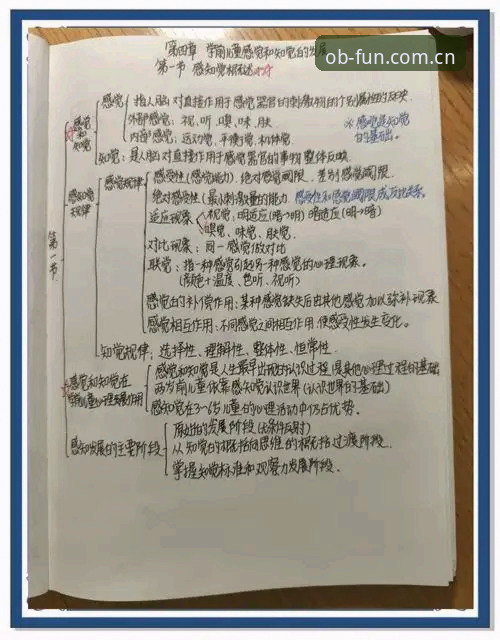 第四章 学前儿童感觉和知觉的发展
第一节 感知觉概述 ☆☆
ob-fun.com.cn
第一节
感觉和知觉
感觉：指人脑对直接作用于感觉器官的刺激物的个别属性的反映
外部感觉：视、听、嗅、味、肤
内部感觉：运动觉、平衡觉、机体觉
※感觉是知觉的基础。
知觉：是人脑对直接作用于感觉器官的事物整体反映
感知觉规律
感觉规律
感受性（感觉能力）、绝对感觉阈限、差别感觉阈限
绝对感受性（最小刺激量的能力 感受性和感觉阈限成反比关系。
适应现象
视觉：明适应（暗→明）暗适应（明→暗）
嗅觉、味觉、肤觉
对比现象：同一感觉做对比
联觉：指一种感觉引起另一种感觉的心理现象。
（颜色+温度、色听、视听）
感觉的补偿作用、某种感觉缺失后由其他感觉加以弥补现象
感觉相互作用、不同感觉之间相互作用，使感受性发生变化。
知觉规律：选择性、理解性、整体性、恒常性
感觉和知觉在学前儿童心理发展作用
感觉和知觉是人生最早出现的认识过程，是其他心理过程的基础
两岁前儿童依靠感知觉认识世界（认识世界的基础）
感知觉在3-6岁儿童的心理活动中仍占优势。
感知发展的主要阶段
原始的发展阶段（无条件反射）
从知觉的概括向思维的概括过渡阶段
掌握知觉标准和观察力发展阶段.